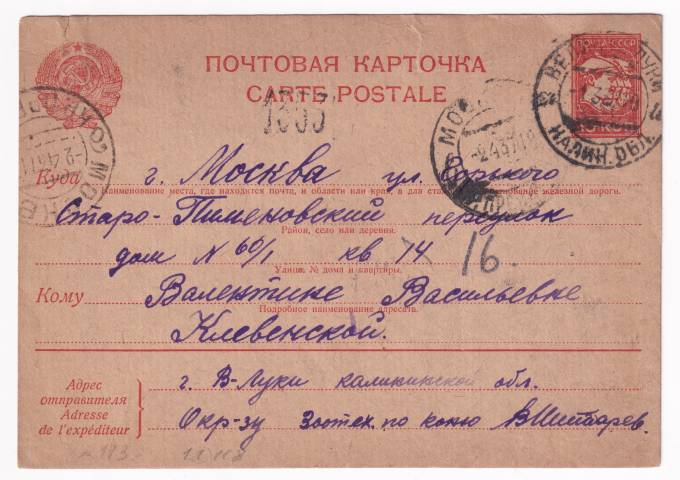 ПОЧТОВАЯ КАРТОЧКА
CARTE POSTALE
1355
Куда г. Москва ул. Горького
Наименование места, где находится почта, и области или края, а для станции наименование железной дороги.
Старо-Пименовский переулок
Район, село или деревня.
дом N 60/1 кв 14
16.
Улица, № дома и квартиры.
Кому Валентине Васильевне
Подробное наименование адресата.
Клевенской.
Адрес отправителя
Adresse de l'expéditeur
г. В-Луки калининской обл.
Окр-зу Зоотех. по коню